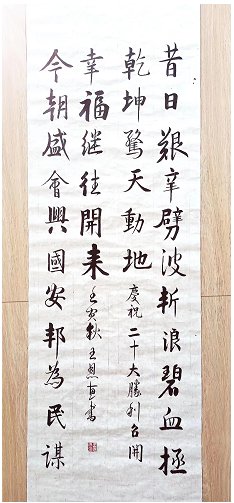 昔日艱辛劈波斬浪碧血極
乾坤驚天動地
慶祝二十大勝利召開
今朝盛會興國安邦為民謀
幸福继往開来
壬寅秋王書